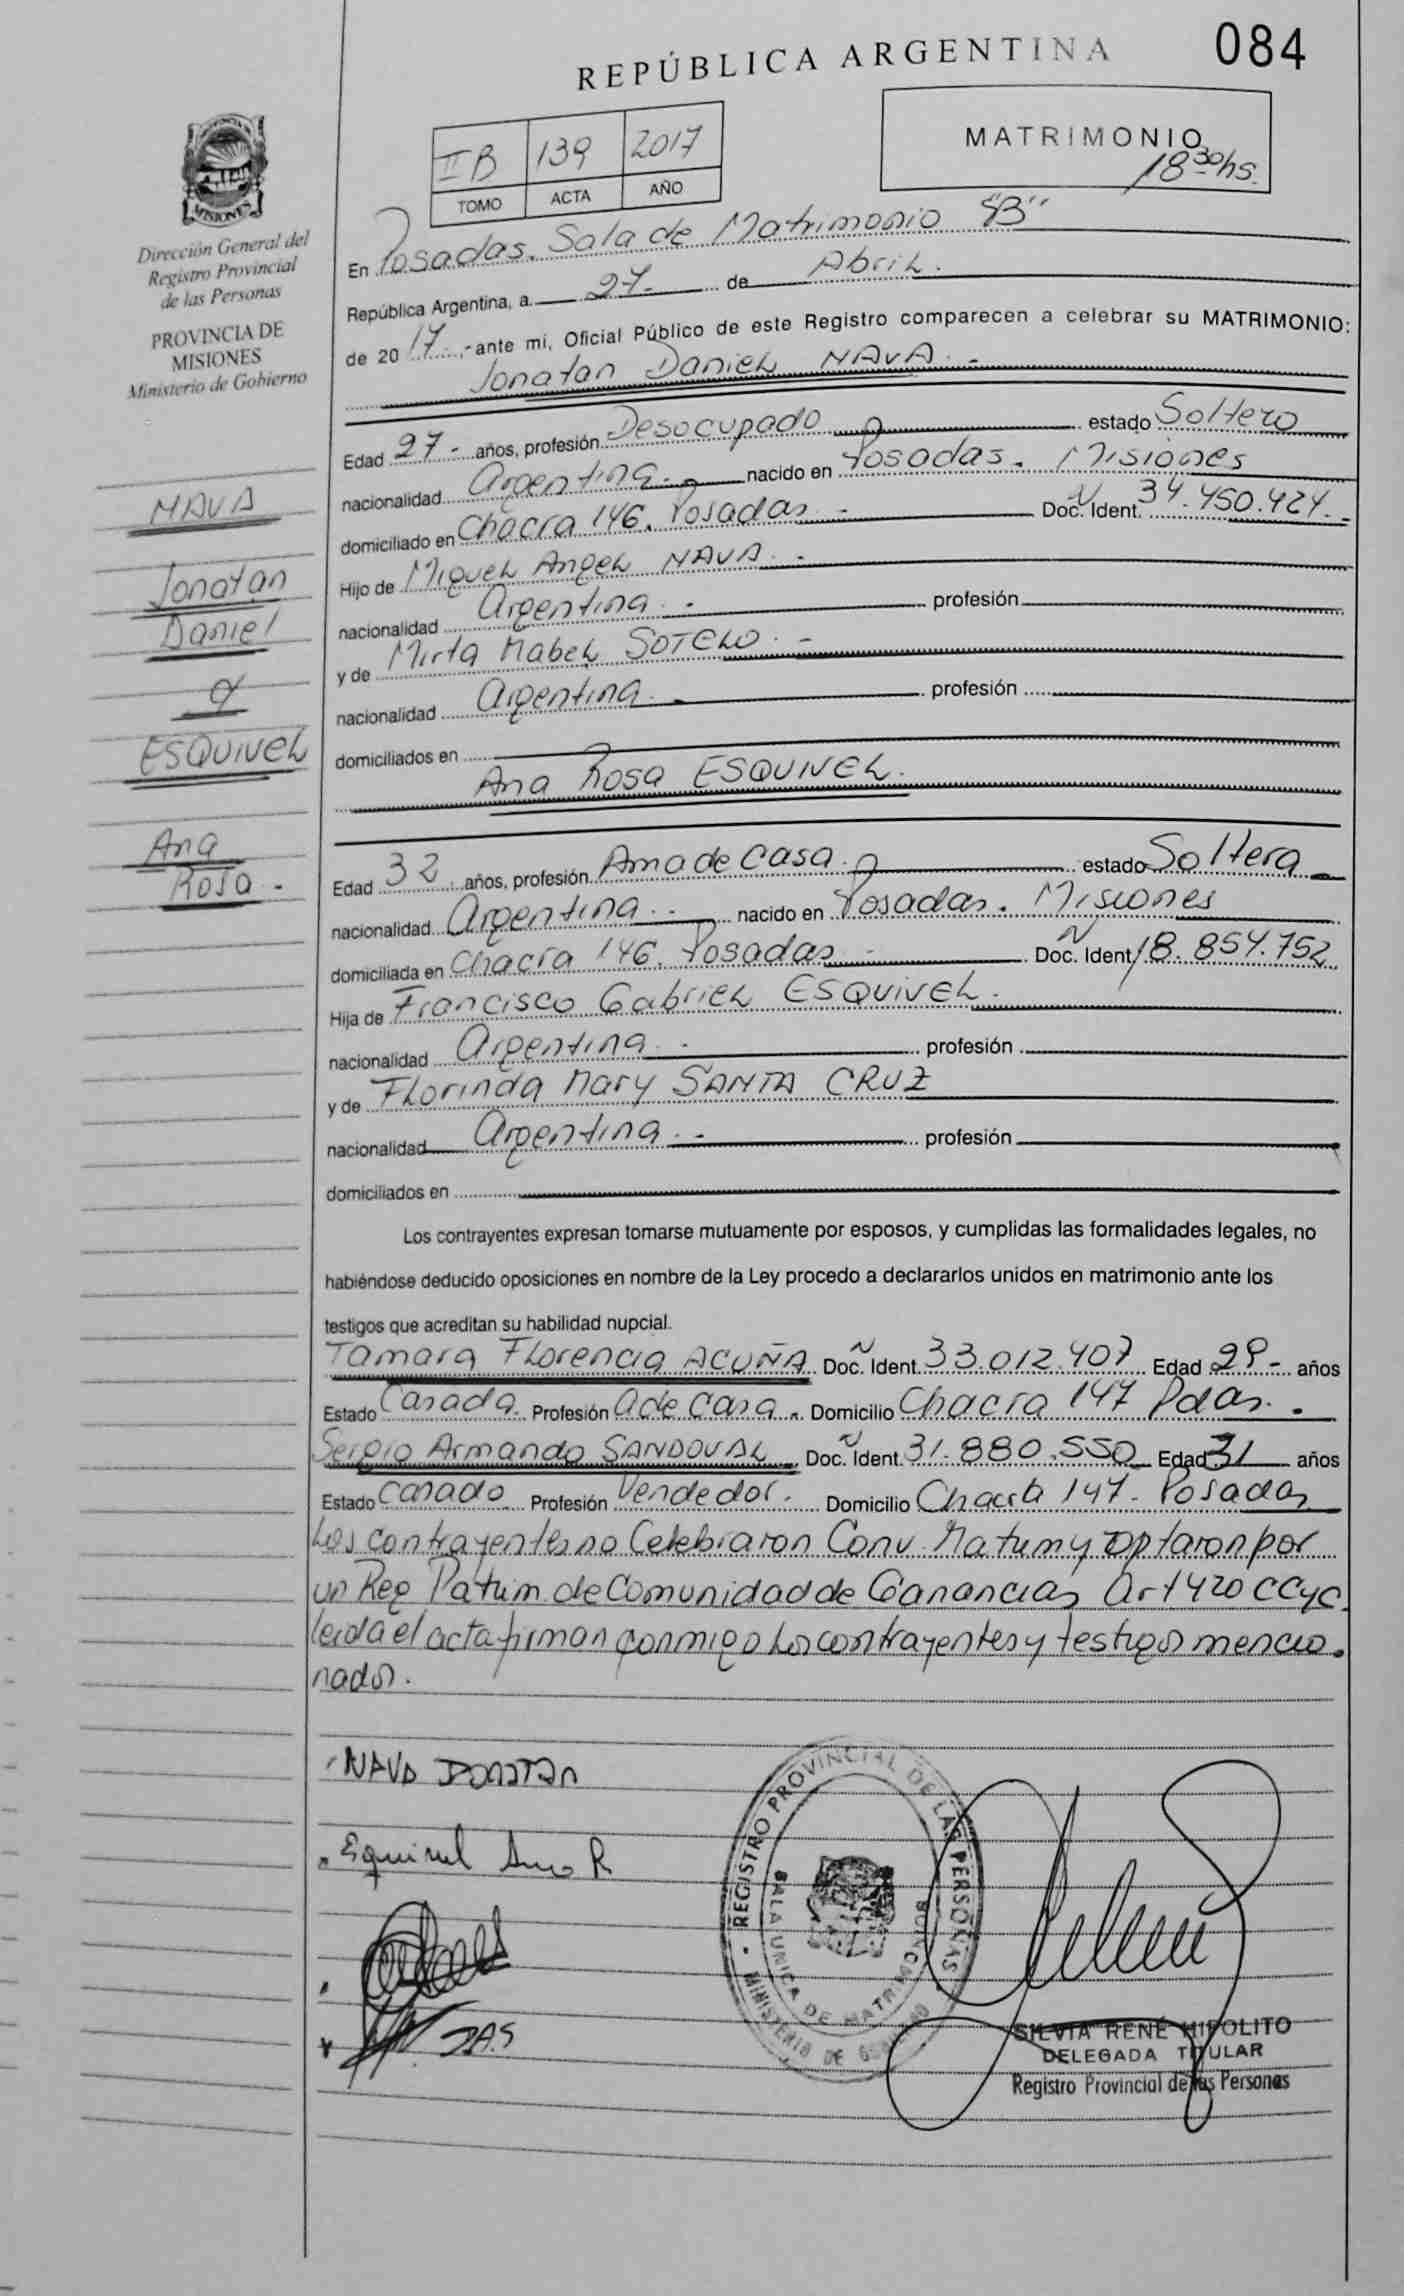 084
REPÚBLICA ARGENTINA
MATRIMONIO
18 30 hs.
II B 139 2017
TOMO ACTA AÑO
PROVINCIA DE
MISIONES
Dirección General del
Registro Provincial
de las Personas
PROVINCIA DE
MISIONES
Ministerio de Gobierno
NAVA
Jonatan
Daniel
y
ESQUIVEL
Ana
Rosa.-
En Posadas. Sala de Matrimonio "B"
República Argentina, a 27- de Abril.
de 20 17.-ante mi, Oficial Público de este Registro comparecen a celebrar su MATRIMONIO:
Jonatan Daniel NAVA.-
Edad 27- años, profesión Desocupado estado Soltero
nacionalidad Argentina.- nacido en Posadas. Misiones
domiciliado en Chacra 146. Posadas.- Doc. Ident. N 34.450.424.-
Hijo de Miguel Angel NAVA.-
nacionalidad Argentina.- profesión
y de Mirta Mabel SOTELO.-
nacionalidad Argentina.- profesión
domiciliados en
Ana Rosa ESQUIVEL.
Edad 32 años, profesión Ama de casa. estado Soltera
nacionalidad Argentina.- nacido en Posadas. Misiones
domiciliada en Chacra 146. Posadas.- Doc. Ident N 18.854.752
Hija de Francisco Gabriel ESQUIVEL.
nacionalidad Argentina.- profesión
y de Florinda Mary SANTA CRUZ
nacionalidad Argentina.- profesión
domiciliados en
Los contrayentes expresan tomarse mutuamente por esposos, y cumplidas las formalidades legales, no
habiéndose deducido oposiciones en nombre de la Ley procedo a declararlos unidos en matrimonio ante los
testigos que acreditan su habilidad nupcial.
Tamara Florencia ACUÑA Doc. Ident. N 33.012.407 Edad 29- años
Estado Casada. Profesión A de casa. Domicilio Chacra 147 Pdas.
Sergio Armando SANDOVAL Doc. Ident. N 31.880.550 Edad 31 años
Estado Casado Profesión Vendedor. Domicilio Chacra 147- Posadas
Los contrayentes no Celebraron Conv. Matrim y optaron por
un Reg Patrim. de Comunidad de Ganancias Art 420 CCyC.
leida el acta firman conmigo Los contrayentes y testigos mencio-
nados.
NAVA JONATAN
Equivel Ana R
J.A.S
REGISTRO PROVINCIAL DE LAS PERSONAS
SALA UNICA DE MATRIMONIOS
MINISTERIO DE GOBIERNO
SILVIA RENÉ HIPOLITO
DELEGADA TITULAR
Registro Provincial de las Personas